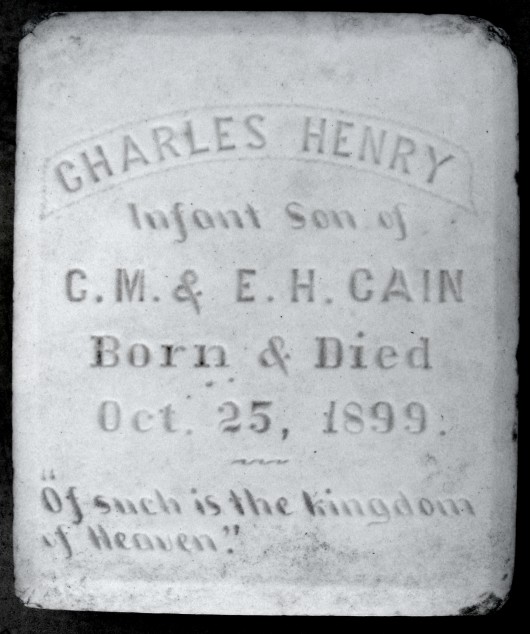 CHARLES HENRY
Infant Son of
C.M. & E.H. CAIN
Born & Died
Oct. 25, 1899.
"Of such is the kingdom
of Heaven."